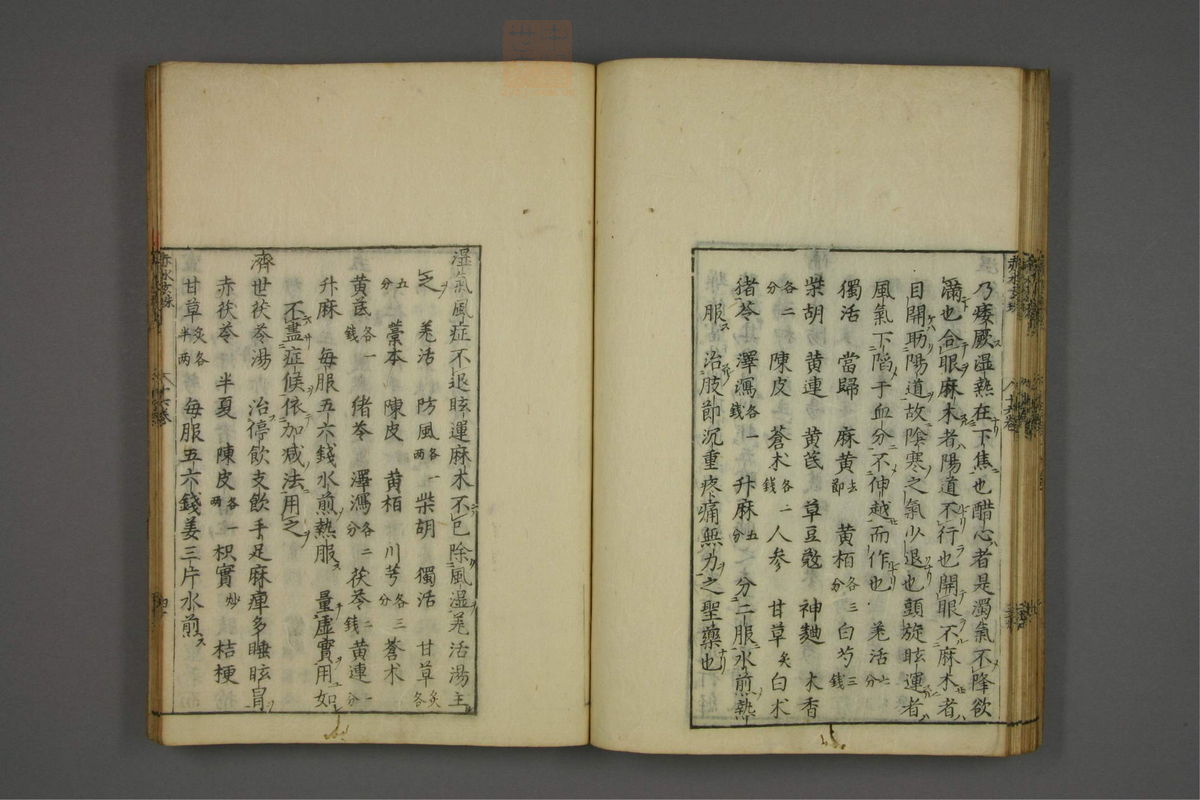 乃痿厥湿熱在下焦也醋心者是濁氣不降欲
滿也合眼麻木者陽道不行也開眼不麻木者
目開助陽道故陰寒之氣少退也頭旋眩運者
風氣下陷于血分不伸越而作也 羌活 六分
獨活 當歸 麻黄 去節 黄栢 各三分 白芍 三錢
柴胡 黄連 黄芪 草豆蔻 神麯 木香
各二分 陳皮 蒼术 各一錢 人参 甘草 炙 白术
猪苓 澤瀉 各一錢 升麻 五分 分二服水煎熱
服 治肢節沉重疼痛無力之聖藥也
湿氣風症不退眩運麻木不已除風湿羌活湯主
之 羌活 防風 各一两 柴胡 獨活 甘草 炙各
五分 藁本 陳皮 黄栢 川芎 各三分 蒼术
黄芪 各一錢 猪苓 澤瀉 各二分 茯苓 二錢 黄連 一分
升麻 毎服五六錢水煎熱服 量虚實用如
不盡症候依加减法用之
濟世茯苓湯 治停飲支飲手足麻痺多睡眩冒
赤茯苓 半夏 陳皮 各一两 枳實 炒 桔梗
甘草 炙各半两 毎服五六錢姜三片水煎